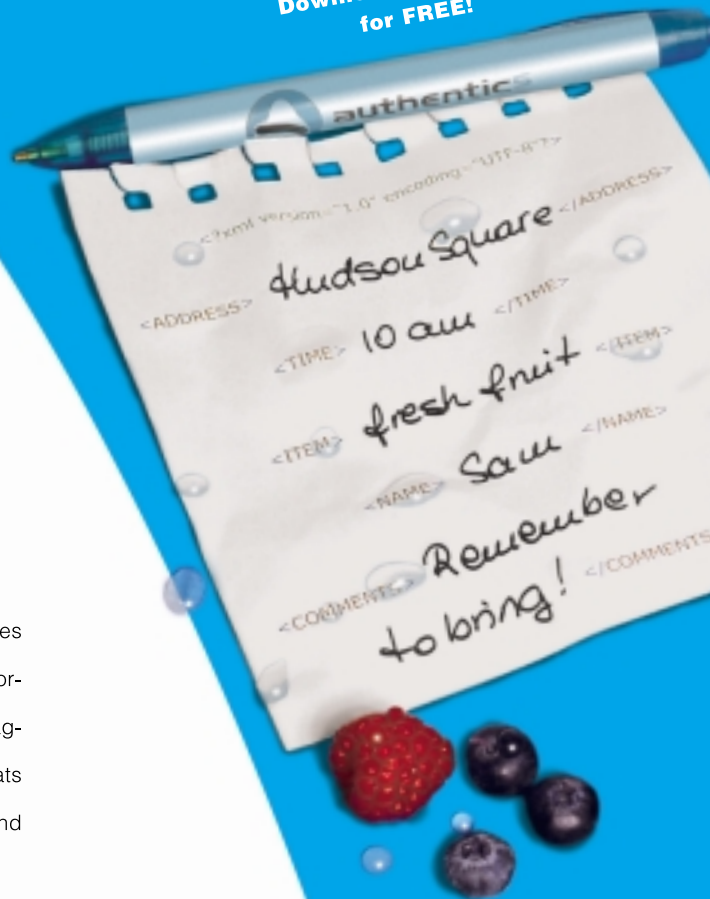 for FREE!
authentic
<?xml version="1.0" encoding="UTF-8"?>
<ADDRESS> Hudson Square </ADDRESS>
<TIME> 10 am </TIME>
<ITEM> fresh fruit </ITEM>
<NAME> Sam </NAME>
<COMMENTS> Remember
to bring! </COMMENTS
es
or-
g-
ats
nd